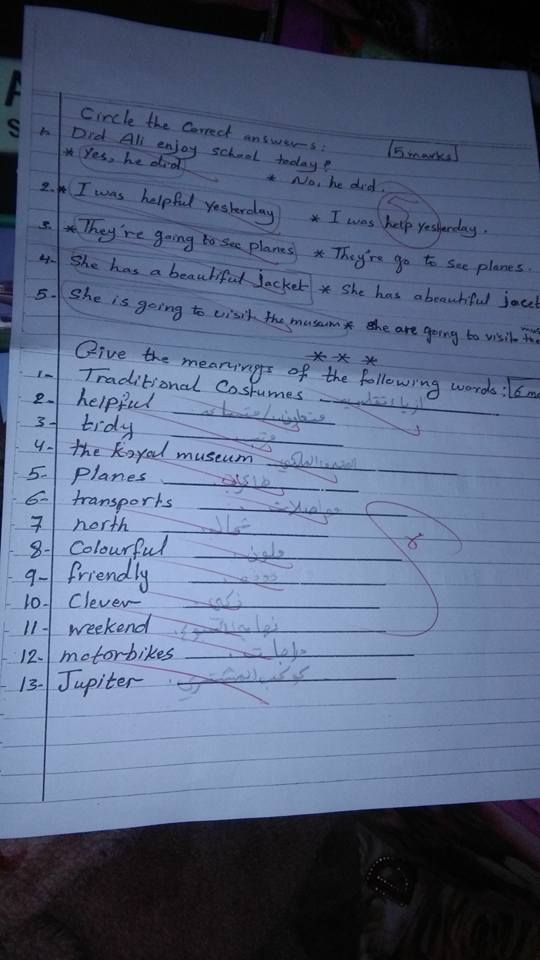 Circle the Correct answers:
1- Did Ali enjoy school today? 5 marks
* Yes, he did * No, he did.
2- * I was helpful yesterday * I was help yesterday.
3- * They're going to see planes * They're go to see planes.
4- She has a beautiful jacket * She has abeautiful jacet
5- She is going to visit the museum * she are going to visit the
* * *
Give the meanings of the following words:
1- Traditional Costumes ازياء تقليديه
2- helpful متعاون/
3- tidy
4- the Royal museum المتحف الملكي
5- Planes طائرات
6- transports مواصلات
7 north شمال
8- Colourful ملون
9- friendly
10- Clever ذكي
11- weekend نهاية الاسبوع
12- motorbikes دراجات
13- Jupiter كوكب المشتري